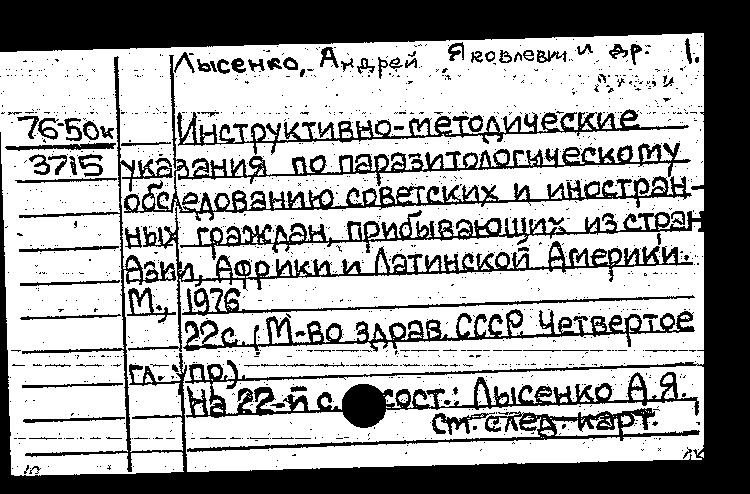 Лысенко, Андрей Яковлевич и др. 1.
76-50к Инструктивно-методические
3715 указания по паразитологическому
обследованию советских и иностран-
ных граждан, прибывающих из стран
Азии, Африки и Латинской Америки.
М., 1976
22с. (М-во здрав. СССР. Четвертое
гл. упр.).
На 22-й с. сост.: Лысенко А.Я.
см. след. карт.